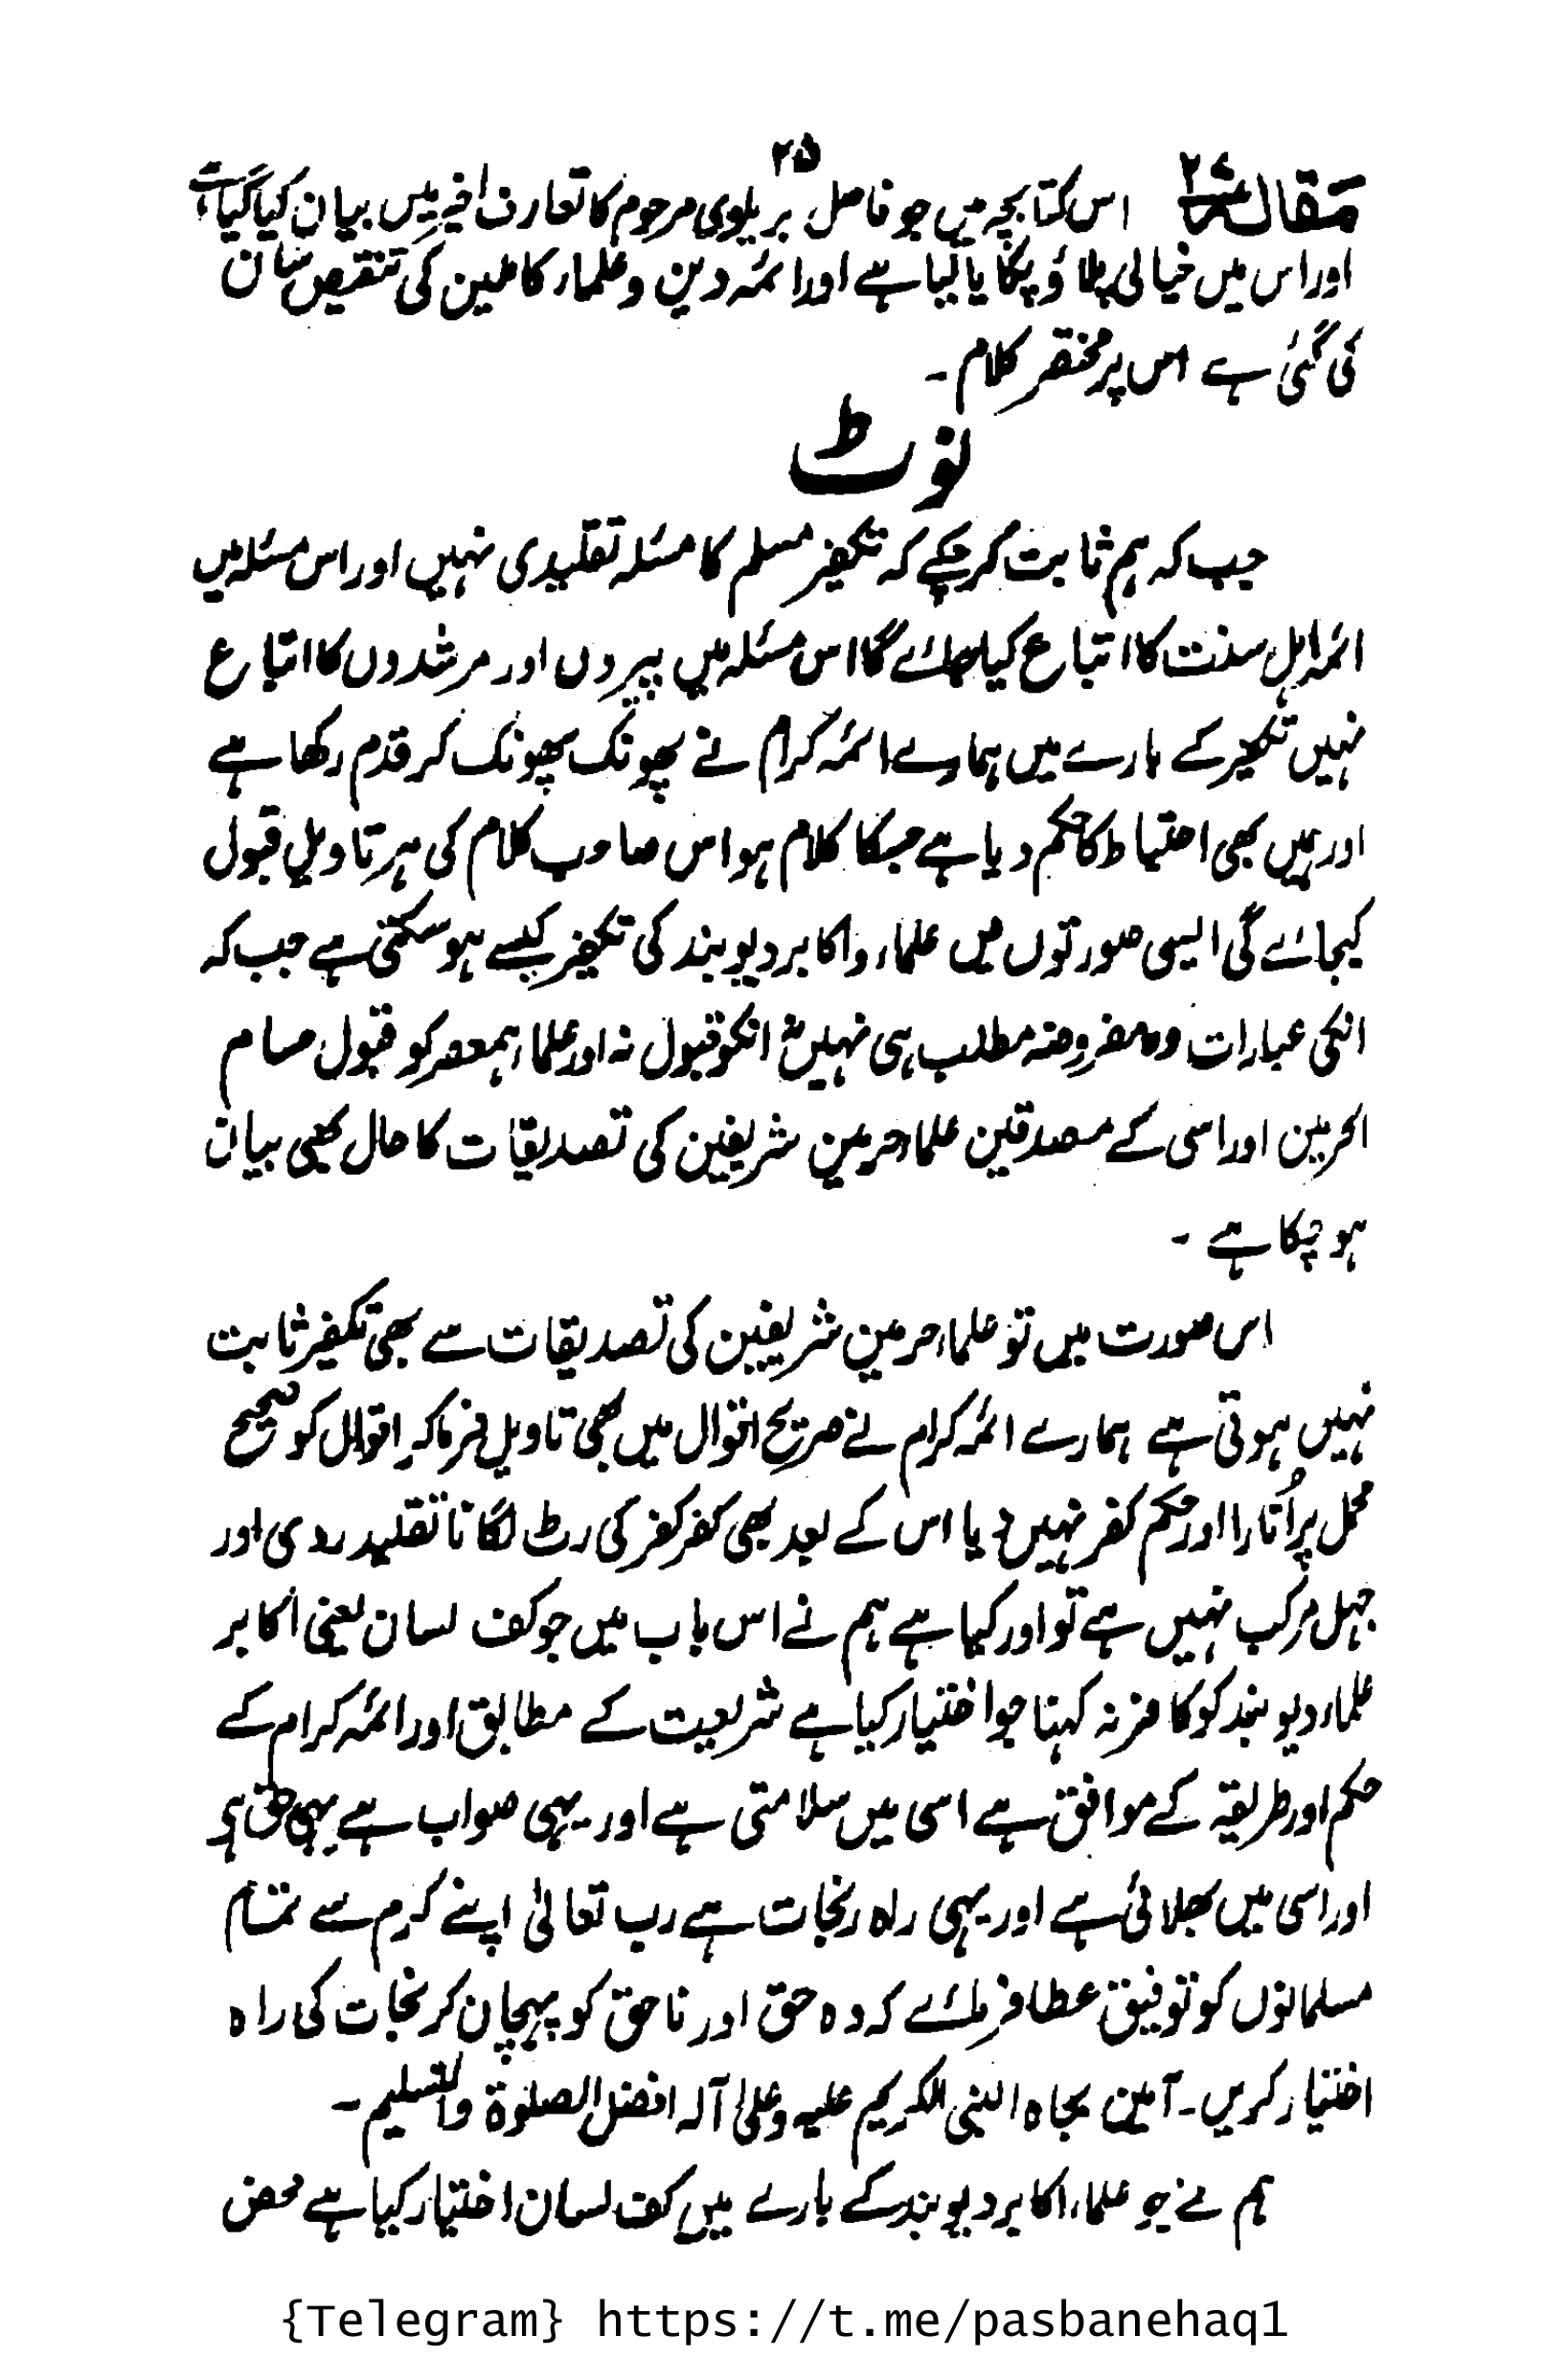 ۲۵
مقالہ ۲۷ اس کتابچہ میں جو فاضل بریلوی مرحوم کا تعارف اخیر میں بیان کیا گیا ہے
اور اس میں خیالی پلاؤ پکایا گیا ہے اور ائمہ دین و علماء کاملین کی تنقیص شان
کی گئی ہے اس پر مختصر کلام ۔
نوٹ
جب کہ ہم ثابت کر چکے کہ تکفیر مسلم کا مسئلہ تقلیدی نہیں اور اس مسئلہ میں
ائمہ اہل سنت کا اتباع کیا جائے گا اس مسئلہ میں پیروں اور مرشدوں کا اتباع
نہیں تکفیر کے بارے میں ہمارے ائمہ کرام نے پھونک پھونک کر قدم رکھا ہے
اور ہمیں بھی احتیاط کا حکم دیا ہے جسکا کلام ہو اس صاحب کلام کی ہر تاویل قبول
کیجائے گی ایسی صورتوں میں علماء و اکابر دیوبند کی تکفیر کیسے ہو سکتی ہے جب کہ
انکی عبارات وہ مفروضہ مطلب ہی نہیں نہ انکو قبول نہ اور علماء ہمعصر کو قبول حسام
الحرمین اور اسی کے مصدقین علماء حرمین شریفین کی تصدیقات کا حال بھی بیان
ہو چکا ہے ۔
اس صورت میں تو علماء حرمین شریفین کی تصدیقات سے بھی تکفیر ثابت
نہیں ہوتی ہے ہمارے ائمہ کرام نے صریح اقوال میں بھی تاویل فرما کر اقوال کو صحیح
محمل پر اُتارا اور حکم کفر نہیں دیا اس کے بعد بھی کفر کفر کی رٹ لگانا تقلید ردی اور
جہل مرکب نہیں ہے تو اور کیا ہے ہم نے اس باب میں جو کف لسان یعنی اکابر
علماء دیوبند کو کافر نہ کہنا جو اختیار کیا ہے شریعت کے مطابق اور ائمہ کرام کے
حکم اور طریقہ کے موافق ہے اسی میں سلامتی ہے اور یہی صواب ہے یہی حق ہے
اور اسی میں بھلائی ہے اور یہی راہ نجات ہے رب تعالیٰ اپنے کرم سے تمام
مسلمانوں کو توفیق عطا فرمائے کہ وہ حق اور ناحق کو پہچان کر نجات کی راہ
اختیار کریں ۔ آمین بجاہ النبی الکریم علیہ وعلیٰ آلہ افضل الصلوٰۃ والتسلیم ۔
ہم نے جو علماء اکابر دیوبند کے بارے میں کف لسان اختیار کیا ہے محض
{Telegram} https://t.me/pasbanehaq1